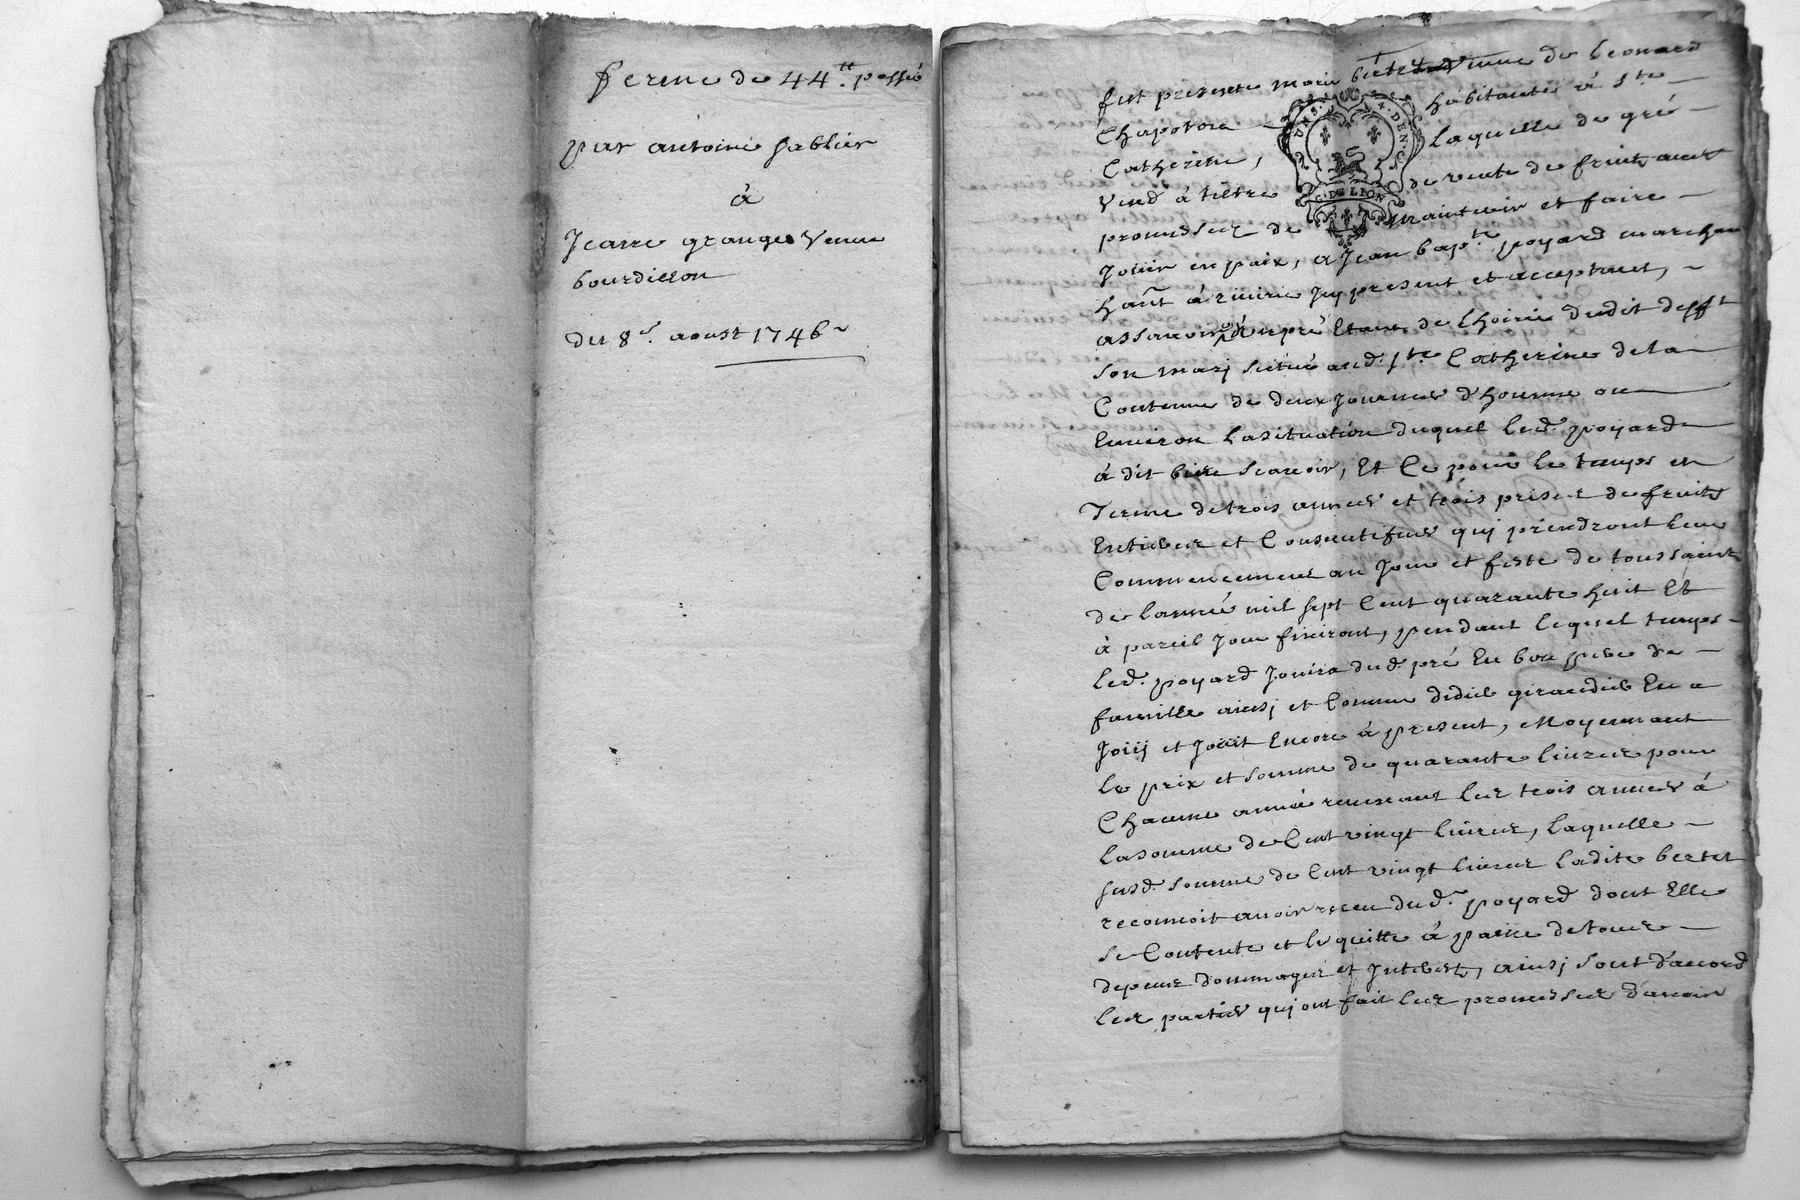 ferme de 44ᵗᵗ passé
par antoine sablier
à
Jeanne grange veuve
bourdillon
du 8ᵉ. aoust 1746
fut presente marie bertet veuve de Leonard
Chapotou habitante à Sᵗᵉ
Catherine, laquelle de gré
vend à tiltre de vente de fruits avec
promesses de maintenir et faire
Jouir en paix, a Jean bapᵗᵉ poyard marchan
hañt à riverie Jcy present et acceptant,
assavoir un pré Etant de Lhoirie dudit deffᵗ
son mary scitué aud. Sᵗᵉ Catherine de la
Contenue de deux Journées d'homme ou
Environ la situation duquel led. poyard
à dit bien scavoir, Et Ce pour le temps et
Terme de trois années et trois prises de fruits
Entieres et Consecutifves qui prendront leur
Commencement au Jour et feste de toussaint
de lanneé mil sept Cent quarante huit Et
à pareil Jour finiront, pendant lequel temps
led. poyard Jouira dud. pré En bon pere de
famille ainsj et Comme didier giraudier En a
Joüij et Joüit Encore à present, Moyennant
le prix et somme de quarante livres pour
Chacune année revenant les trois années à
la somme de Cent vingt livres, laquelle
susd. somme de Cent vingt livres ladite bertet
reconnoit avoir receu dud. poyard dont Elle
se Contente et le quitte à paine de tous
depens dommages et Jnterest, ainsj sont d'accord
les parties qui ont fait les promesses d'avoir